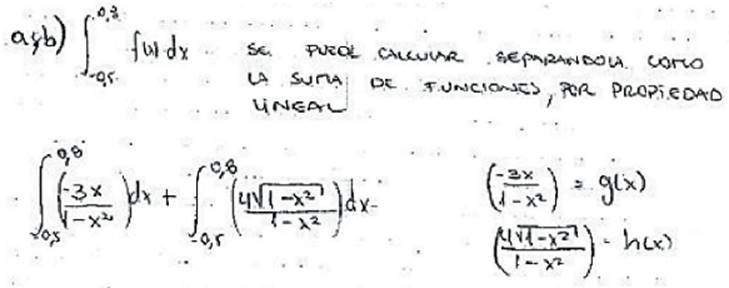 a y b) ∫_{-0,5}^{0,8} f(x) dx SE PUEDE CALCULAR SEPARANDOLA COMO
LA SUMA DE FUNCIONES, POR PROPIEDAD
LINEAL
∫_{-0,5}^{0,8} (-3x / 1-x²) dx + ∫_{-0,5}^{0,8} (4√(1-x²) / 1-x²) dx -
(-3x / 1-x²) = g(x)
(4√(1-x²) / 1-x²) = h(x)